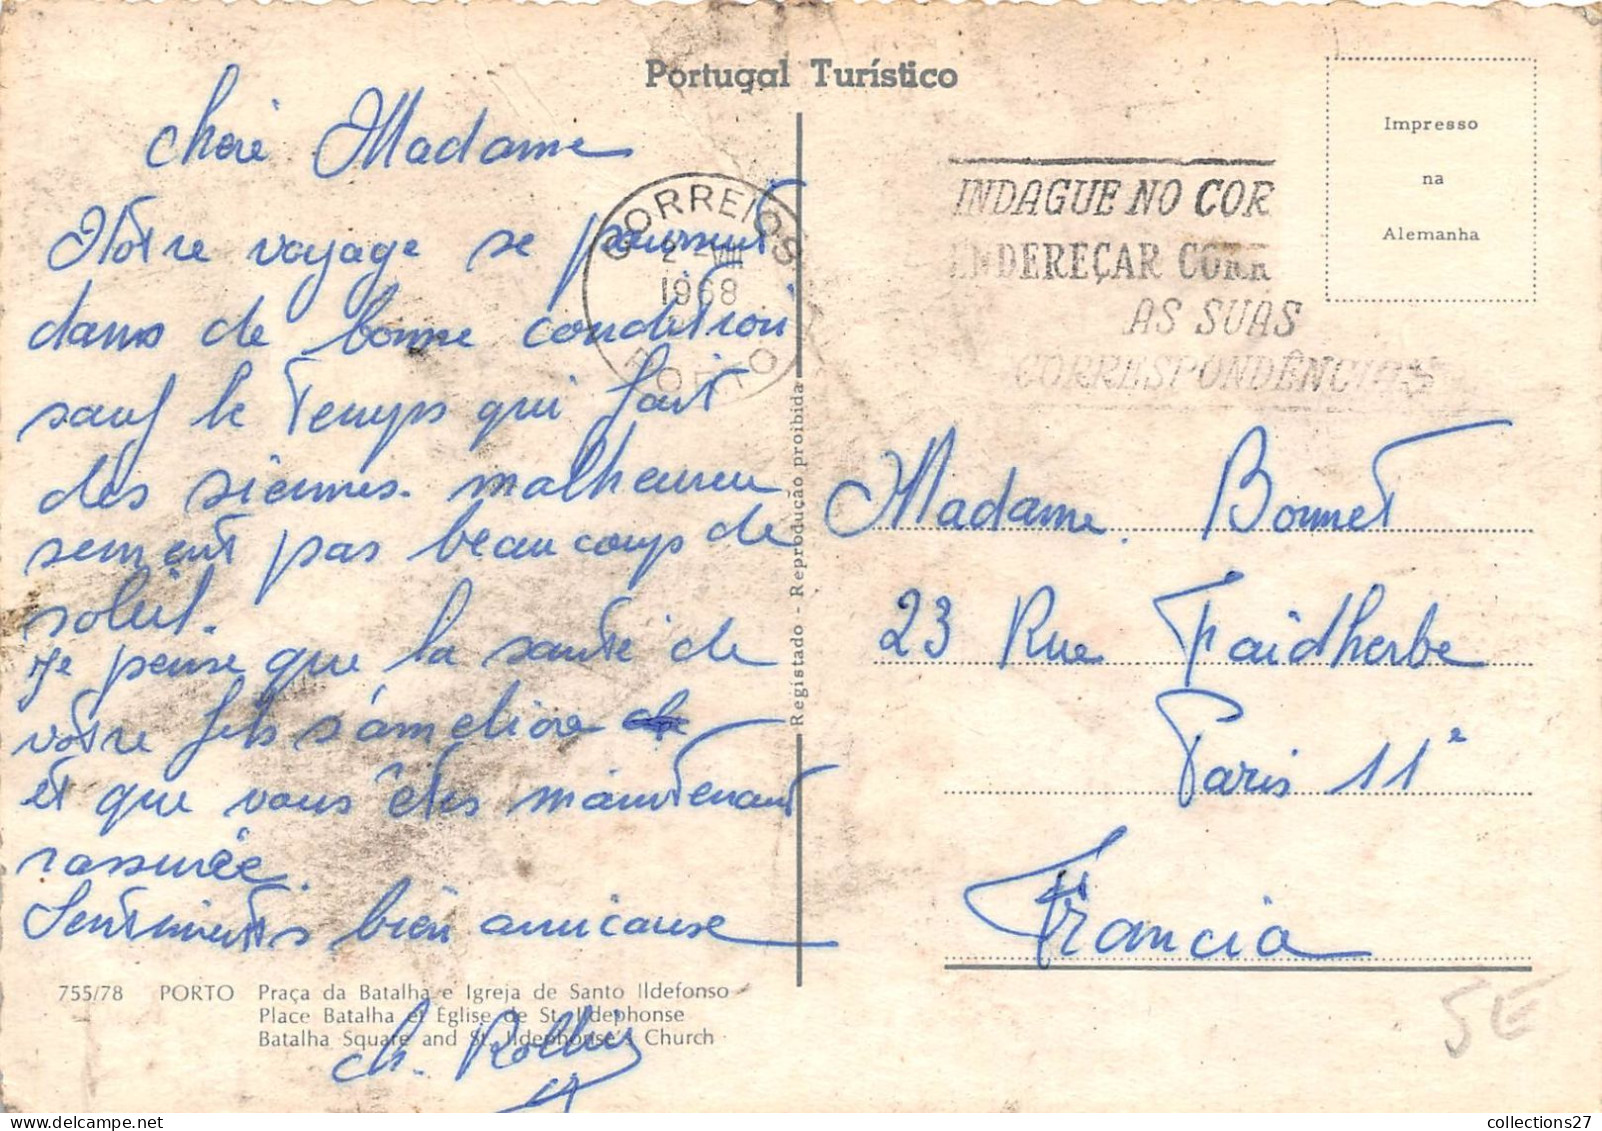 Portugal Turístico
chère Madame
Nôtre voyage se poursuit
dans de bonne condition
sauf le Temps qui fait
des siennes. malheureu
sement pas beaucoup de
soleil.
Je pense que la santé de
vôtre fils s'améliore
et que vous êtes maintenant
rassurée.
Sentiments bien amicause
ch.
755/78 PORTO Praça da Batalha e Igreja de Santo Ildefonso
Place Batalha et Église de St. Ildephonse
Batalha Square and St. Ildephonse's Church
Registado - Reprodução proibida
CORREIOS
2 - VIII
1968
PORTO
INDAGUE NO COR
ENDEREÇAR CORR
AS SUAS
CORRESPONDÊNCIAS
Impresso
na
Alemanha
Madame. Bonnet
23 Rue Faidherbe
Paris 11e
Francia
5E
collections27